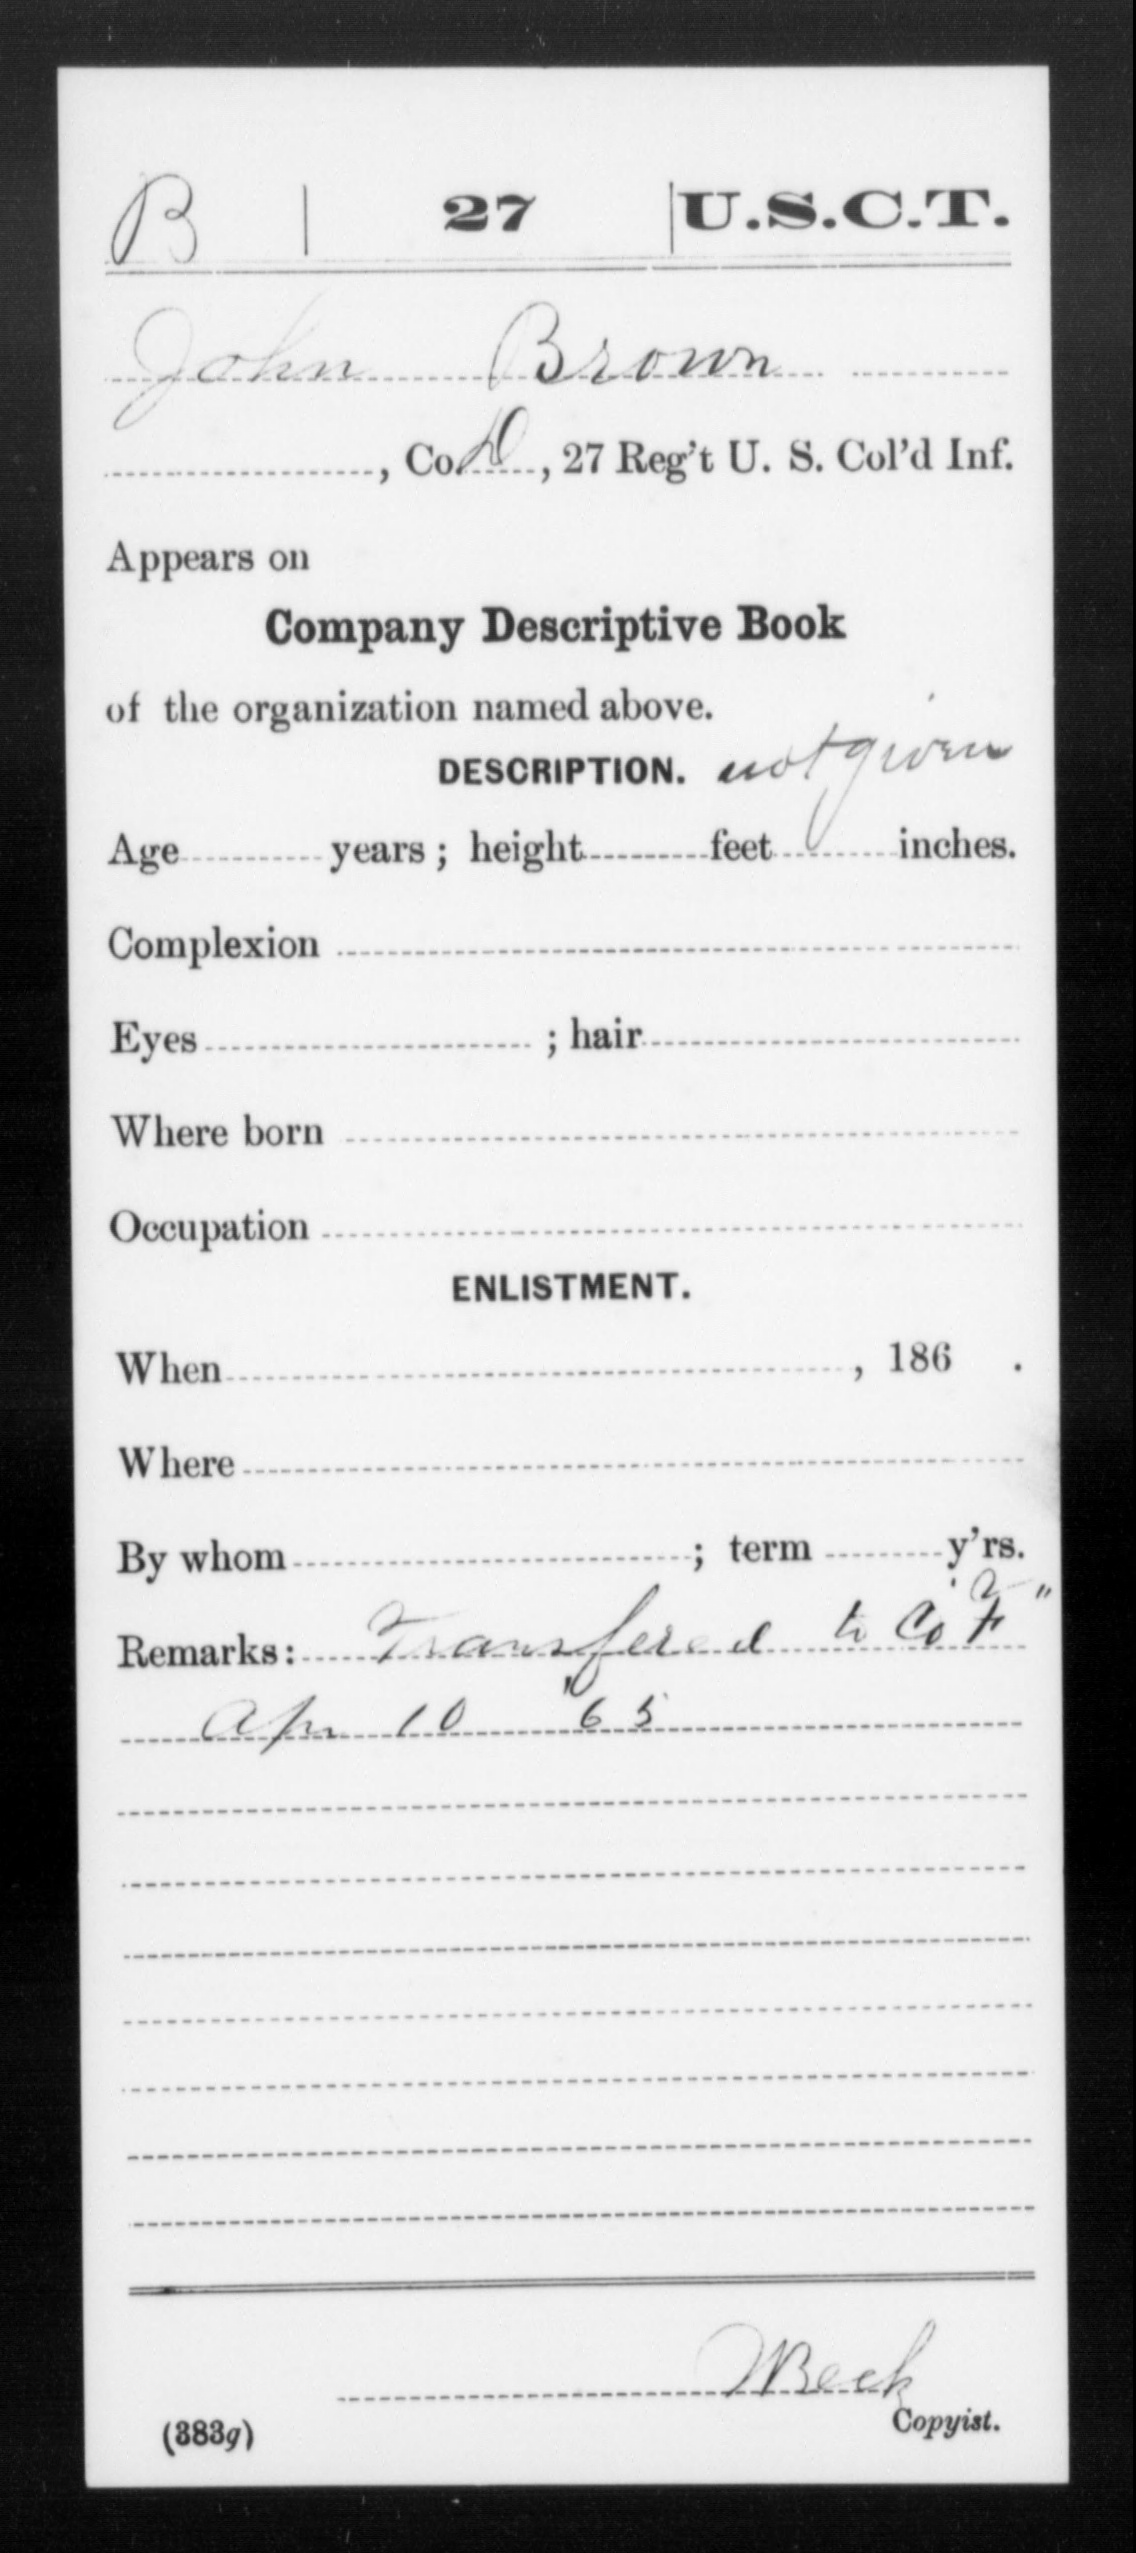 B | 27 | U.S.C.T.
John Brown
, Co. D, 27 Reg't U. S. Col'd Inf.
Appears on
Company Descriptive Book
of the organization named above.
DESCRIPTION. not given
Age years; height feet inches.
Complexion
Eyes ; hair
Where born
Occupation
ENLISTMENT.
When , 186 .
Where
By whom ; term y'rs.
Remarks: Transfered to Co "F"
Apr 10 '65
Beck
Copyist.
(383g)